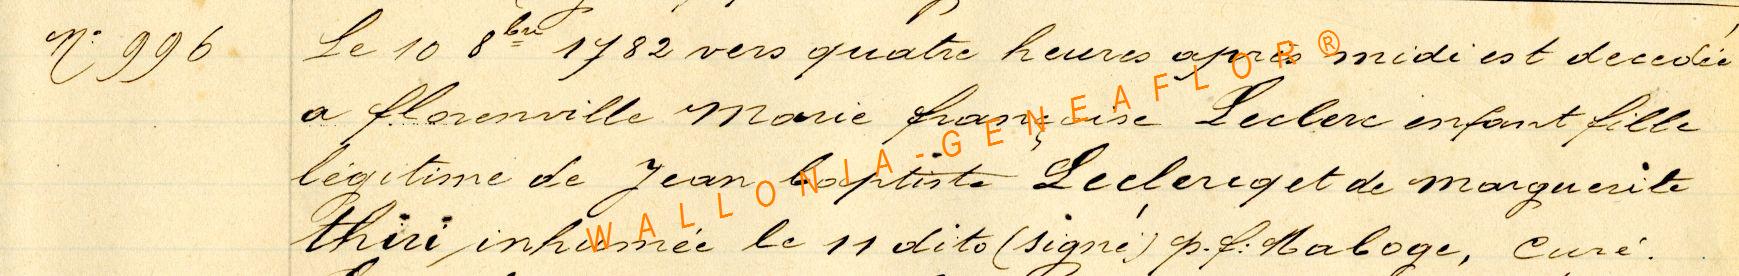 N° 996 Le 10 8bre 1782 vers quatre heures après midi est decedée
a florenville Marie françoise Leclerc enfant fille
légitime de Jean baptiste Leclercq et de marguerite
thiri inhumée le 11 dito (signé) p. f. Maboge, curé.
WALLONIA-GENEAFLOR®